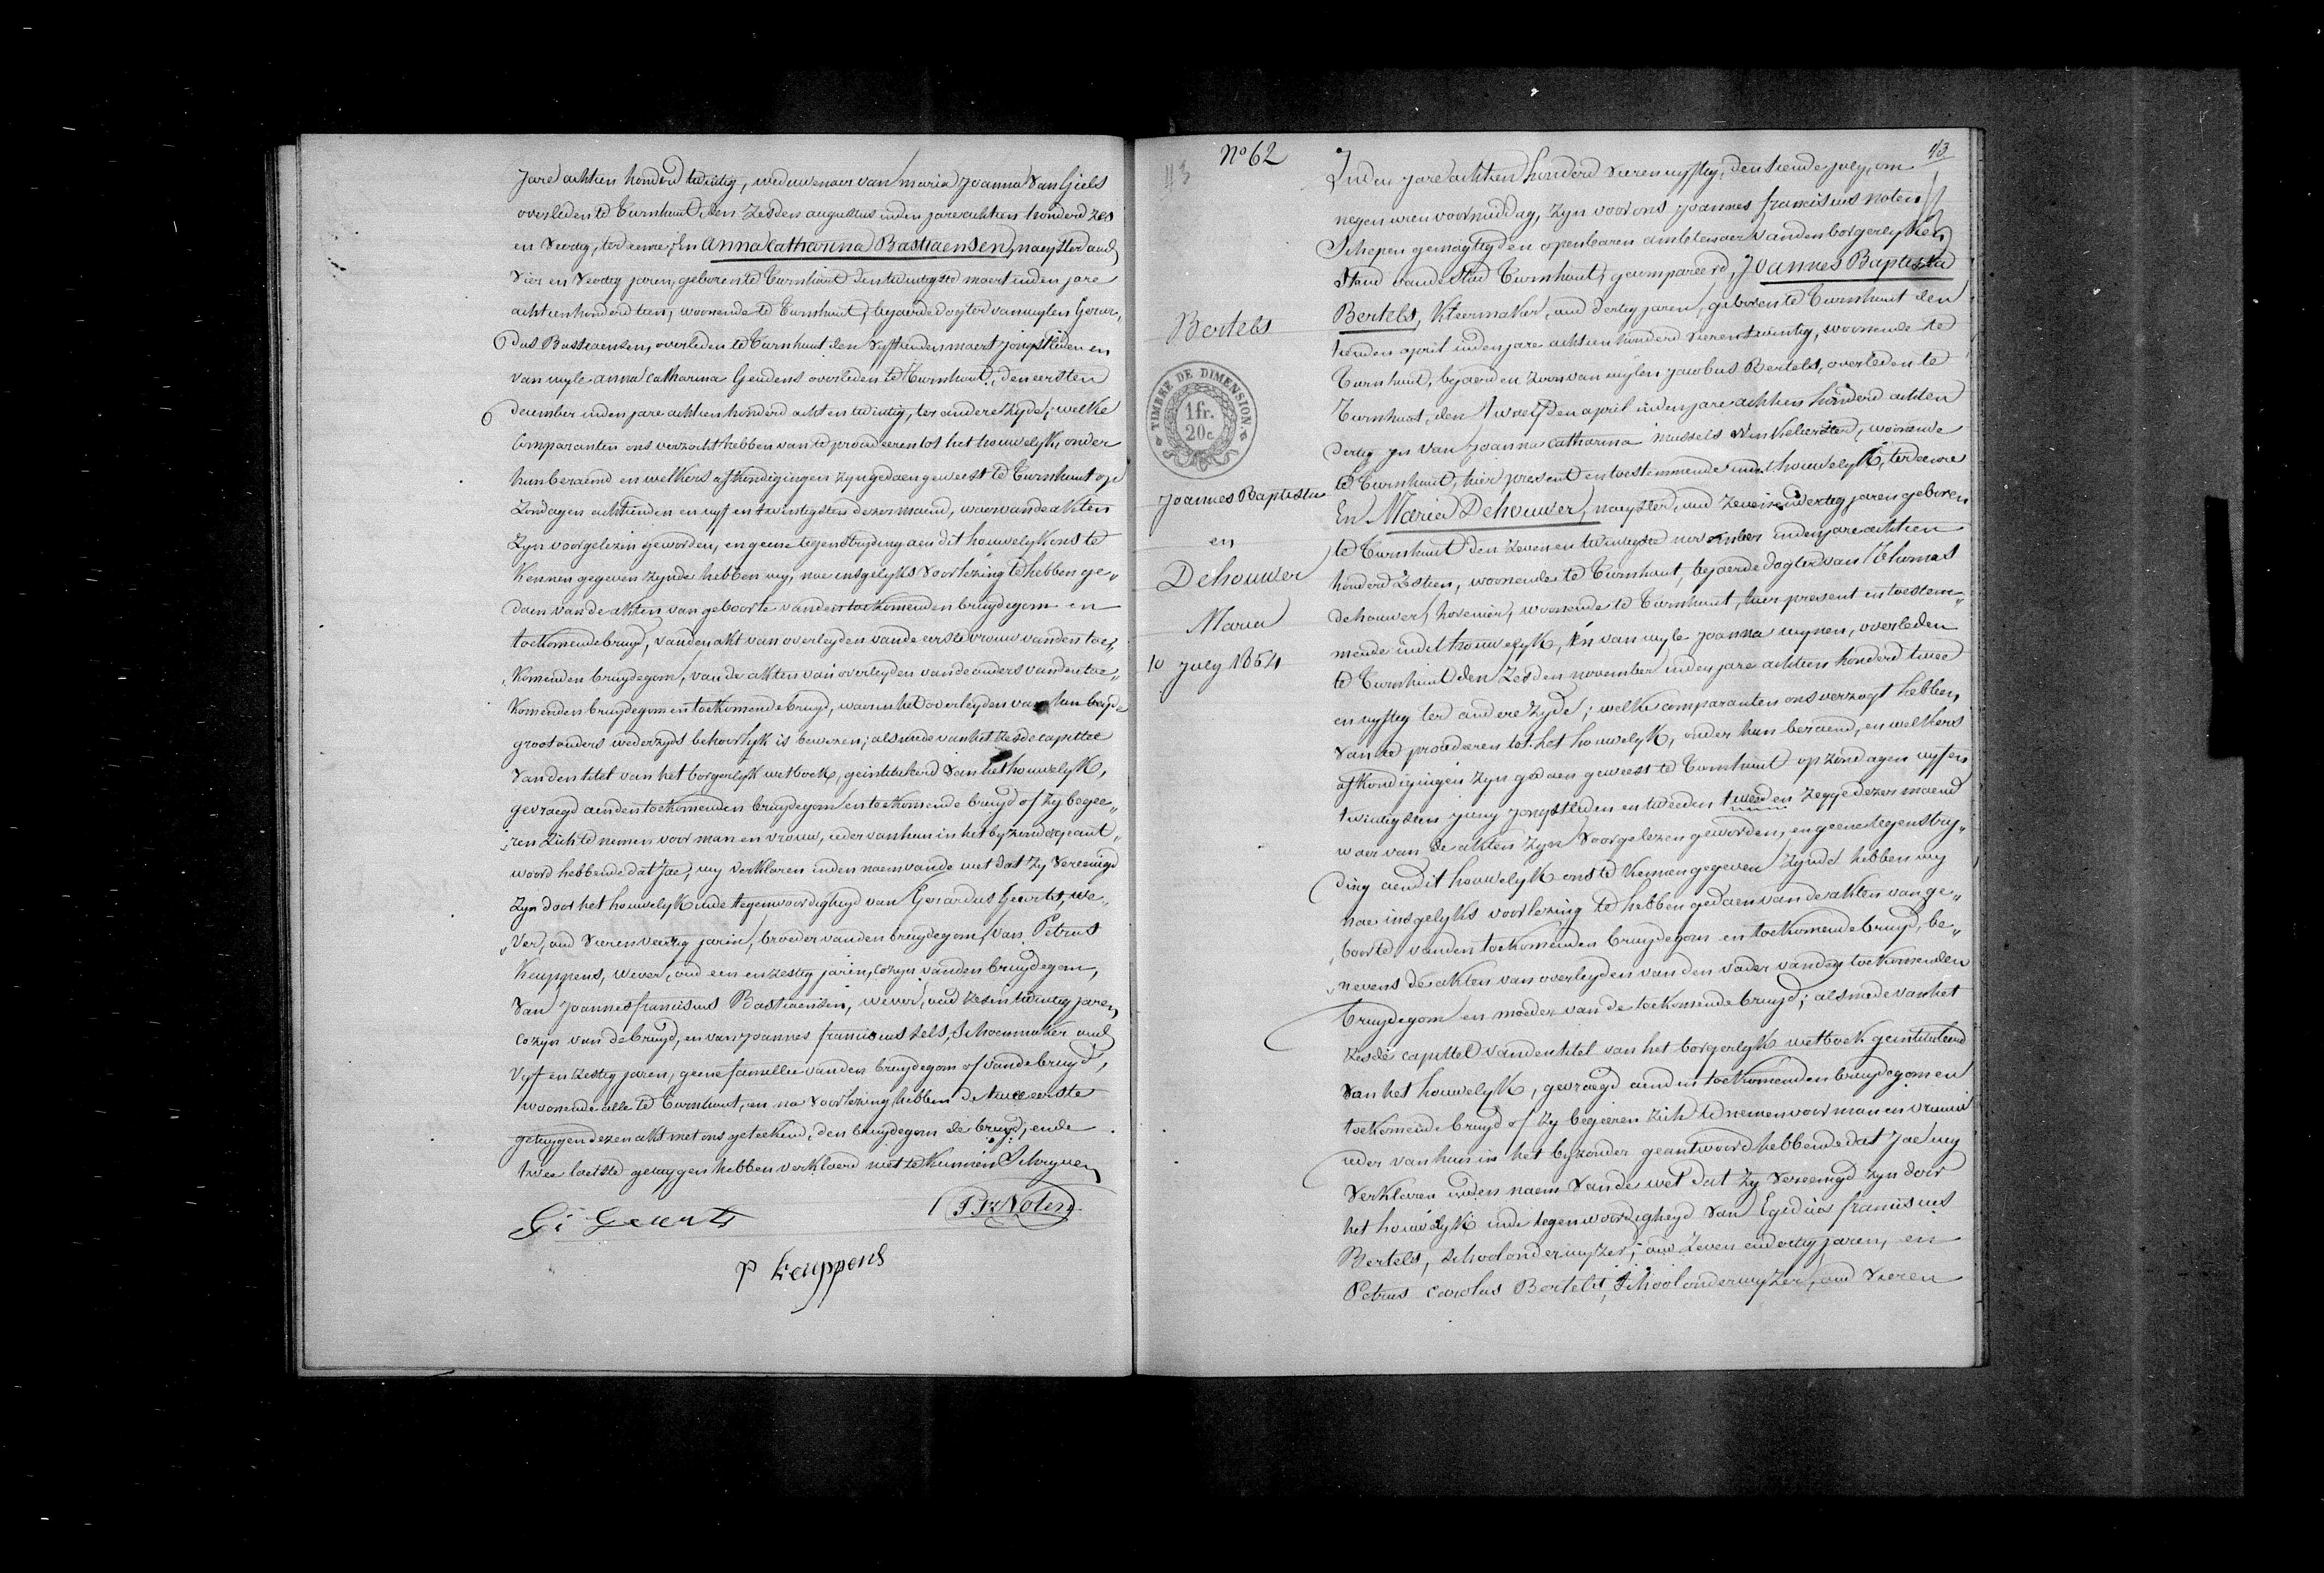 Jare achtien honderd twintig, weduwenaer van maria Joanna Van Giels
overleden te Turnhout den zesden augustus inden jare achtien honderd zes
en veertig, ter eenre; En Anna Catharina Bastiaensen, naeyster oud
vier en veertig jaren, geboren te Turnhout den twintigste maert inden jare
achtienhonderd tien, woonende te Turnhout, bejaerde dogter van wylen Gerar„
dus Bastiaensen, overleden te Turnhout den vyftienden maert jongstleden en
van wyle anna Catharina Geudens overleden te Turnhout, den eersten
december inden jare achtien honderd acht en twintig, ter andere zyde; welke
Comparanten ons verzocht hebben van te procedeeren tot het houwelyk, onder
hun beraemd en welkers afkondigingen zyn gedaen geweest te Turnhout op
Zondagen achtienden en vyf en twintigsten dezer maend, waervan de akten
zyn voorgelezen geworden, en geene tegenstryding aen dit houwelyk ons te
kennen gegeven zynde hebben wy, nae insgelyks voorlezing te hebben ge„
daen van de akten van geboorte vanden toekomenden bruydegom en
toekomende bruyd, vanden akt van overlyden vande eerste vrouw vanden toe„
„komenden bruydegom, van de akten van overleyden van de ouders vanden toe„
komenden bruydegom en toekomende bruyd, waerin het overleyden van hun beyde
grootouders wederzyds behoorlyk is bewezen; alsmede van het zesde capittel
vanden titel van het borgerlyk wetboek, geintituleerd van het houwelyk,
gevraegd aenden toekomenden bruydegom en toekomende bruyd of zy begee„
„ren zich te nemen voor man en vrouw, ieder van hun in het byzonder geant„
woord hebbende dat Jae, wy verklaren inden naem vande wet dat zy vereenigd
zyn door het houwelyk inde tegenwoordigheyd van Gerardus Geerts, we„
„ver, oud vierenveertig jaren, broeder vanden bruydegom, van Petrus
Keuppens, wever, oud een en zestig jaren, cozyn vanden bruydegom,
van Joannes franciscus Bastiaensen, wever, oud zesen twintig jaren,
cozyn van de bruyd, en van Joannes franciscus Sels, Schoenmaker oud
vyf en zestig jaren, geene famillie vanden bruydegom of vande bruyd,
woonende alle te Turnhout, en na voorlezing hebben de twee eerste
getuygen dezen akt met ons geteekend, den bruydegom de bruyd, en de
twee laetste getuygen hebben verklaerd niet te kunnen Schryven
Gi Geerts
J Fr Noten
P Keuppens
No 62
43
43
Bertels
TIMBRE DE DIMENSION
1 fr.
20 c.
Joannes Baptista
en
Dehouwer
Maria
10 july 1854
Inden jare achtien honderd vierenvyftig, den tiende july, om
negen uren voormiddag, zyn voor ons Joannes franciscus Noten
Schepen gemagtigden openbaren ambtenaer vanden borgerlyken
Stand vande Stad Turnhout, gecompareerd, Joannes Baptista
Bertels, kleermaker, oud dertig jaren, geboren te Turnhout den
tienden april inden jare achtien honderd vierentwintig, woonende te
Turnhout, bejaerden zoon van wylen Jacobus Bertels, overleden te
Turnhout, den twaelfden april inden jare achtien honderd achten
dertig en van Joanna Catharina Mussels winkelierster, woonende
te Turnhout, hier present en toestemmende in dit houwelyk, ter eenre
En Maria Dehouwer, naeyster, oud zevenendertig jaren geboren
te Turnhout den zeven en twintigste november inden jare achtien
honderd zestien, woonende te Turnhout, bejaerde dogter van Thomas
dehouwer, hovenier, woonende te Turnhout, hier present en toestem„
mende in dit houwelyk, En van wyle Joanna wynen, overleden
te Turnhout den zesden november inden jare achtien honderd twee
en vyftig ter andere zyde; welke comparanten ons verzogt hebben
van te procederen tot het houwelyk, onder hun beraemd, en welkers
afkondigingen zyn gedaen geweest te Turnhout op zondagen vyf en
twintigsten juny jongstleden en tweeden tweeden zegge dezer maend
waer van de akten zyn voorgelezen geworden, en geene tegenstry„
ding aen dit houwelyk ons te kennen gegeven zynde hebben wy
nae insgelyks voorlezing te hebben gedaen van de akten van ge„
„boorte vanden toekomenden bruydegom en toekomende bruyd, be„
„nevens de akten van overleyden van den vader vanden toekomenden
bruydegom en moeder van de toekomende bruyd; alsmede van het
zesde capittel vanden titel van het borgerlyk wetboek geintituleerd
van het houwelyk, gevraegd aenden toekomenden bruydegom en
toekomende bruyd of zy begeeren zich te nemen voor man en vrouw
ieder van hun in het byzonder geantwoord hebbende dat Jae wy
verklaren inden naem vande wet dat zy vereenigd zyn door
het houwelyk inde tegenwoordigheyd van Egidius franciscus
Bertels, schoolonderwyzer, oud zeven en dertig jaren, en
Petrus Carolus Bertels, Schoolonderwyzer, oud vieren